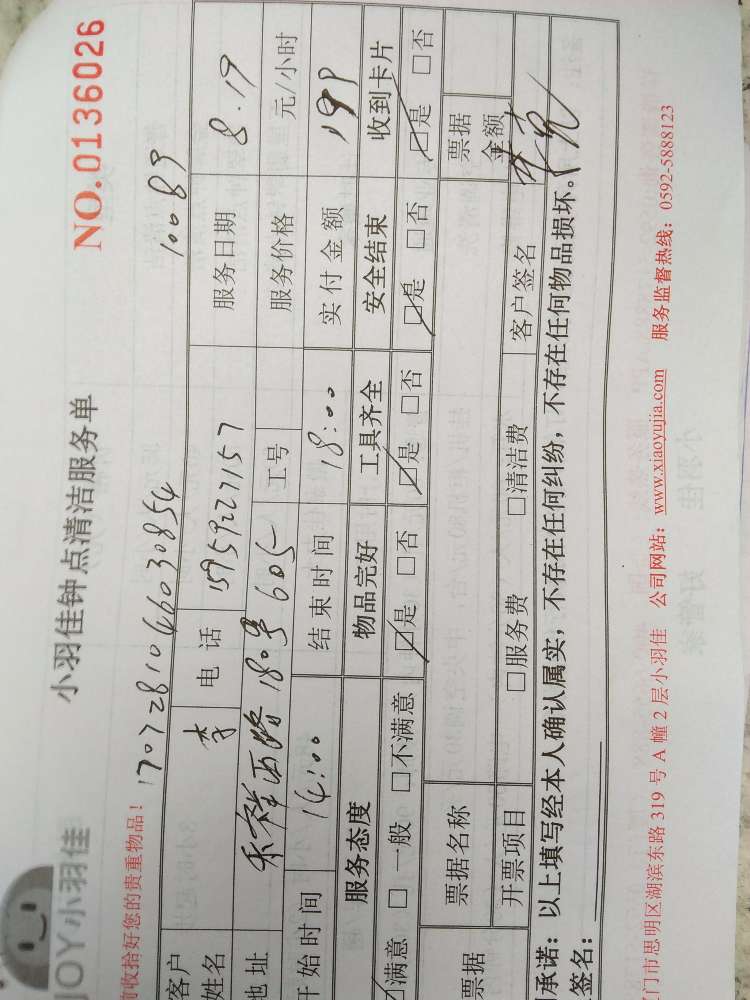 JOY小羽佳
小羽佳钟点清洁服务单
NO.0136026
前收拾好您的贵重物品!
1707281046030854 10089
客户姓名 李 电话 15959227157 服务日期 8.19
地址 西路180号605 工号 服务价格 元/小时
开始时间 14:00 结束时间 18:00 实付金额 199
服务态度 物品完好 工具齐全 安全结束 收到卡片
☑满意 □一般 □不满意 ☑是 □否 ☑是 □否 ☑是 □否 ☑是 □否
票据 票据名称 票据金额
开票项目 □服务费 □清洁费 客户签名
承诺:以上填写经本人确认属实,不存在任何纠纷,不存在任何物品损坏。
签名:
门市思明区湖滨东路 319 号 A 幢 2 层小羽佳 公司网站:www.xiaoyujia.com 服务监督热线:0592-5888123